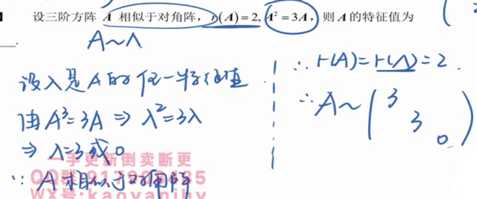 设三阶方阵 A 相似于对角阵, r(A)=2, A²=3A, 则 A 的特征值为
A∼Λ
设λ是A的任一特征值
由A²=3A ⇒ λ²=3λ
⇒ λ=3或0
∵ A相似于对角阵
∴ r(A)=r(Λ)=2
∴ A∼(3 3 0)
一手更新倒卖断更